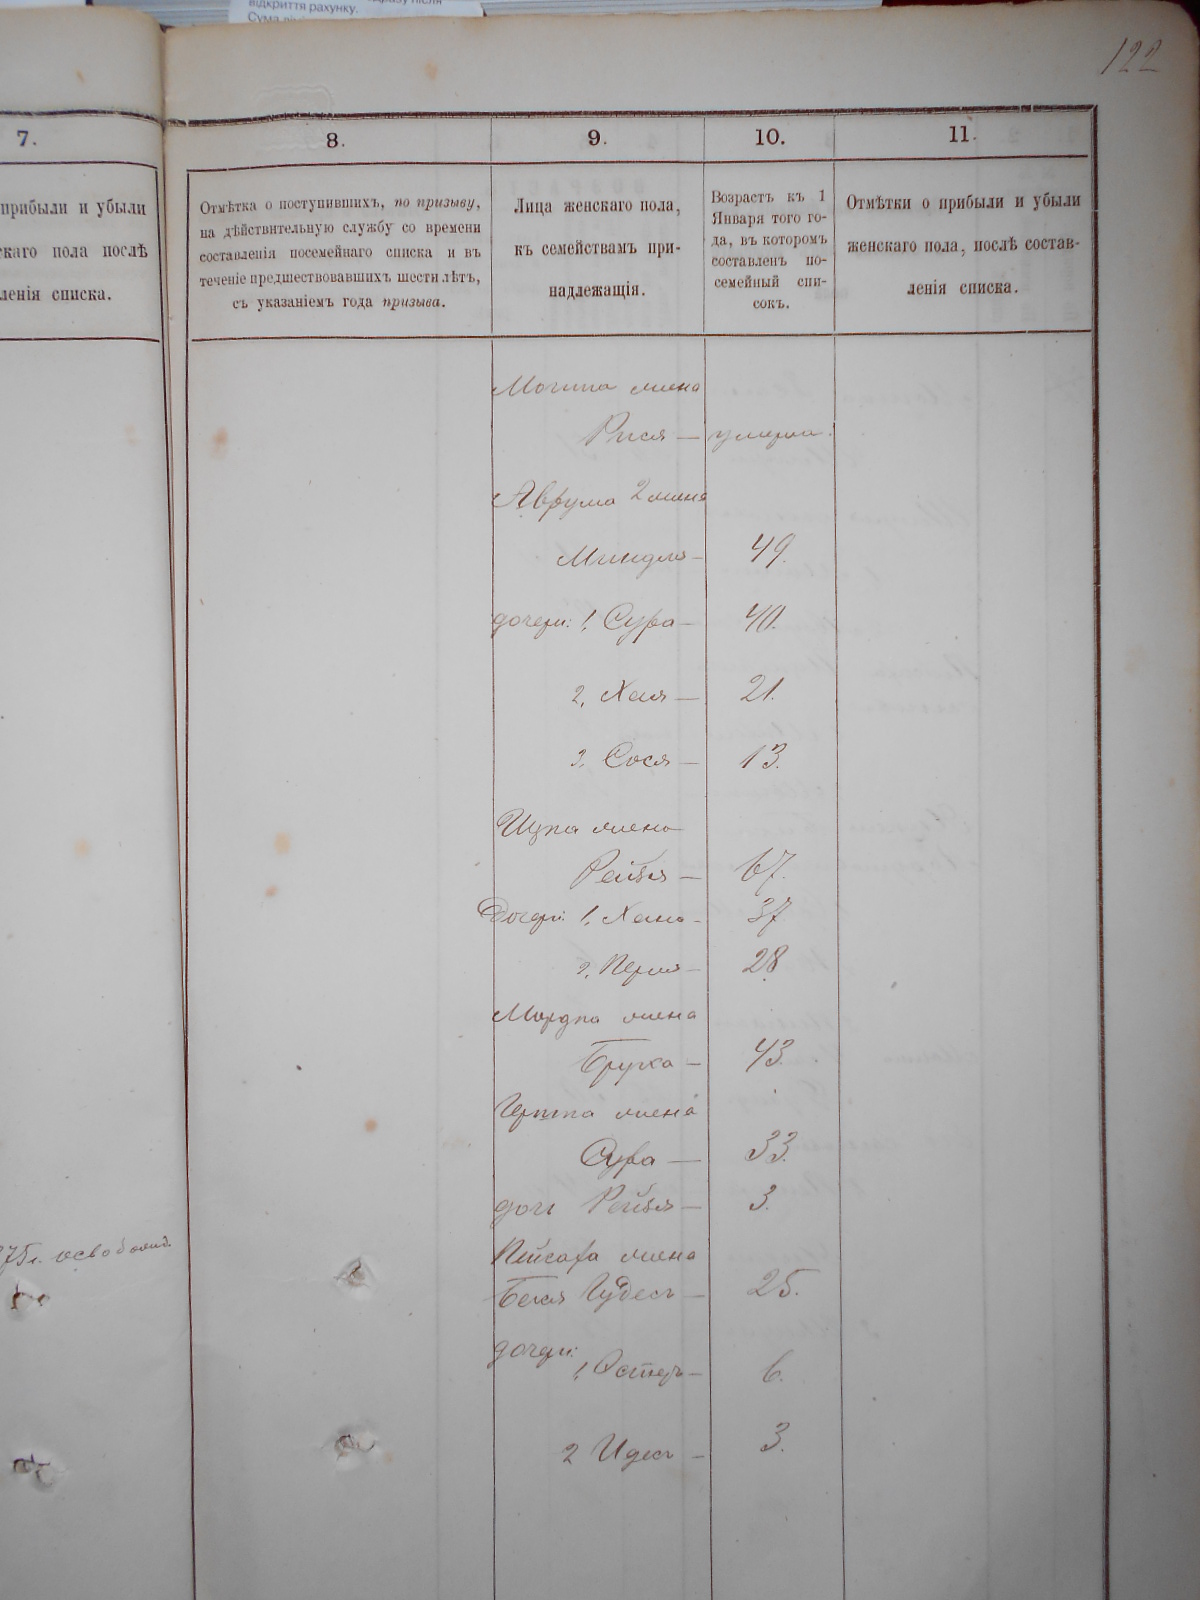 відкриття рахунку.
122
7.
8.
9.
10.
11.
прибыли и убыли
скаго пола послѣ
ленія списка.
Отмѣтка о поступившихъ, по призыву,
на дѣйствительную службу со времени
составленія посемейнаго списка и въ
теченіе предшествовавшихъ шести лѣтъ,
съ указаніемъ года призыва.
Лица женскаго пола,
къ семействамъ при-
надлежащія.
Возрастъ къ 1
Января того го-
да, въ которомъ
составленъ по-
семейный спи-
сокъ.
Отмѣтки о прибыли и убыли
женскаго пола, послѣ состав-
ленія списка.
Мошка жена
Рися — умерла.
Аврума 2 жена
Миндля — 49.
дочери: 1, Сура — 40.
2, Хая — 21.
3, Сося — 13.
Ицка жена
Рейзя — 67.
Дочери: 1, Хана — 37
2, Перля — 28
Мордка жена
Бруха — 43.
Гершка жена
Сура — 33.
дочь Рейзя — 3.
Пейсаха жена
Бейля Гудесъ — 25.
дочери:
1, Эстеръ — 6.
2 Идесъ — 3.
75 г. освобожд.